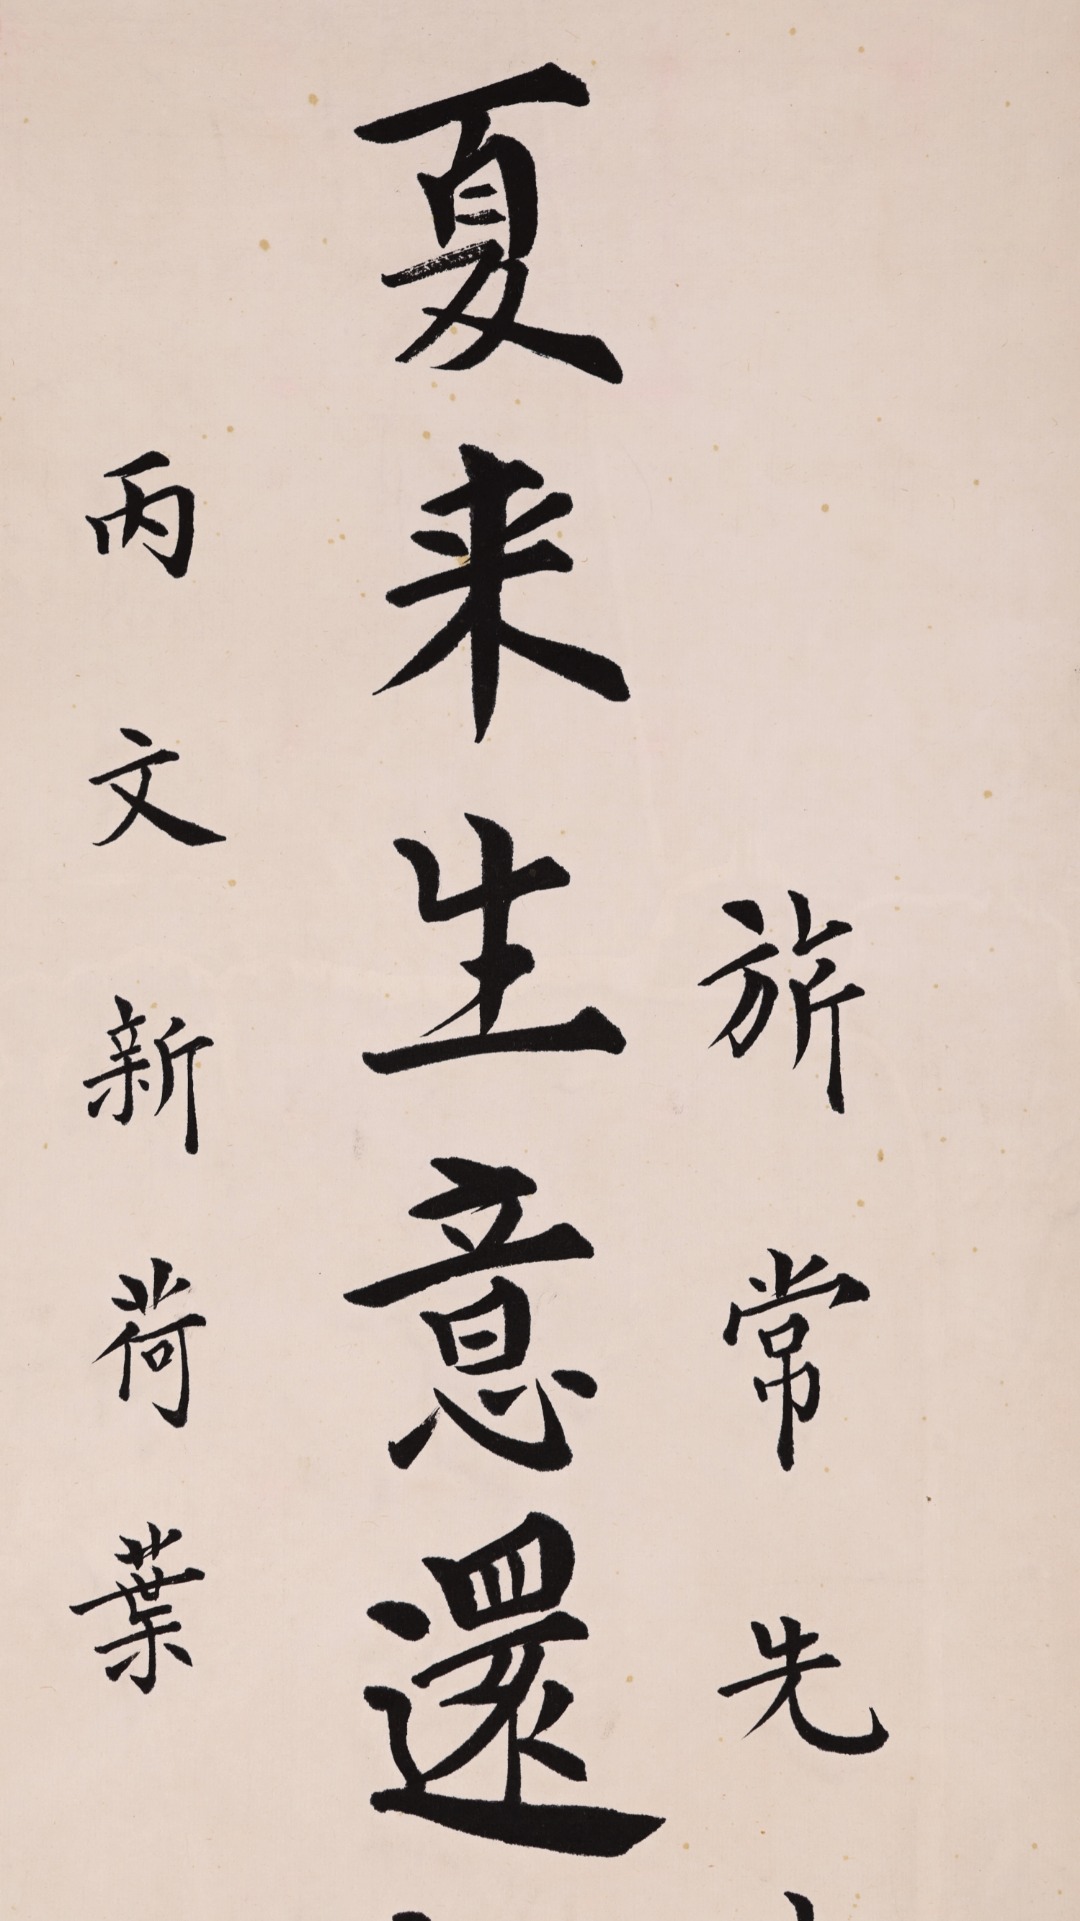 旂常先
夏来生意還
丙文新荷葉